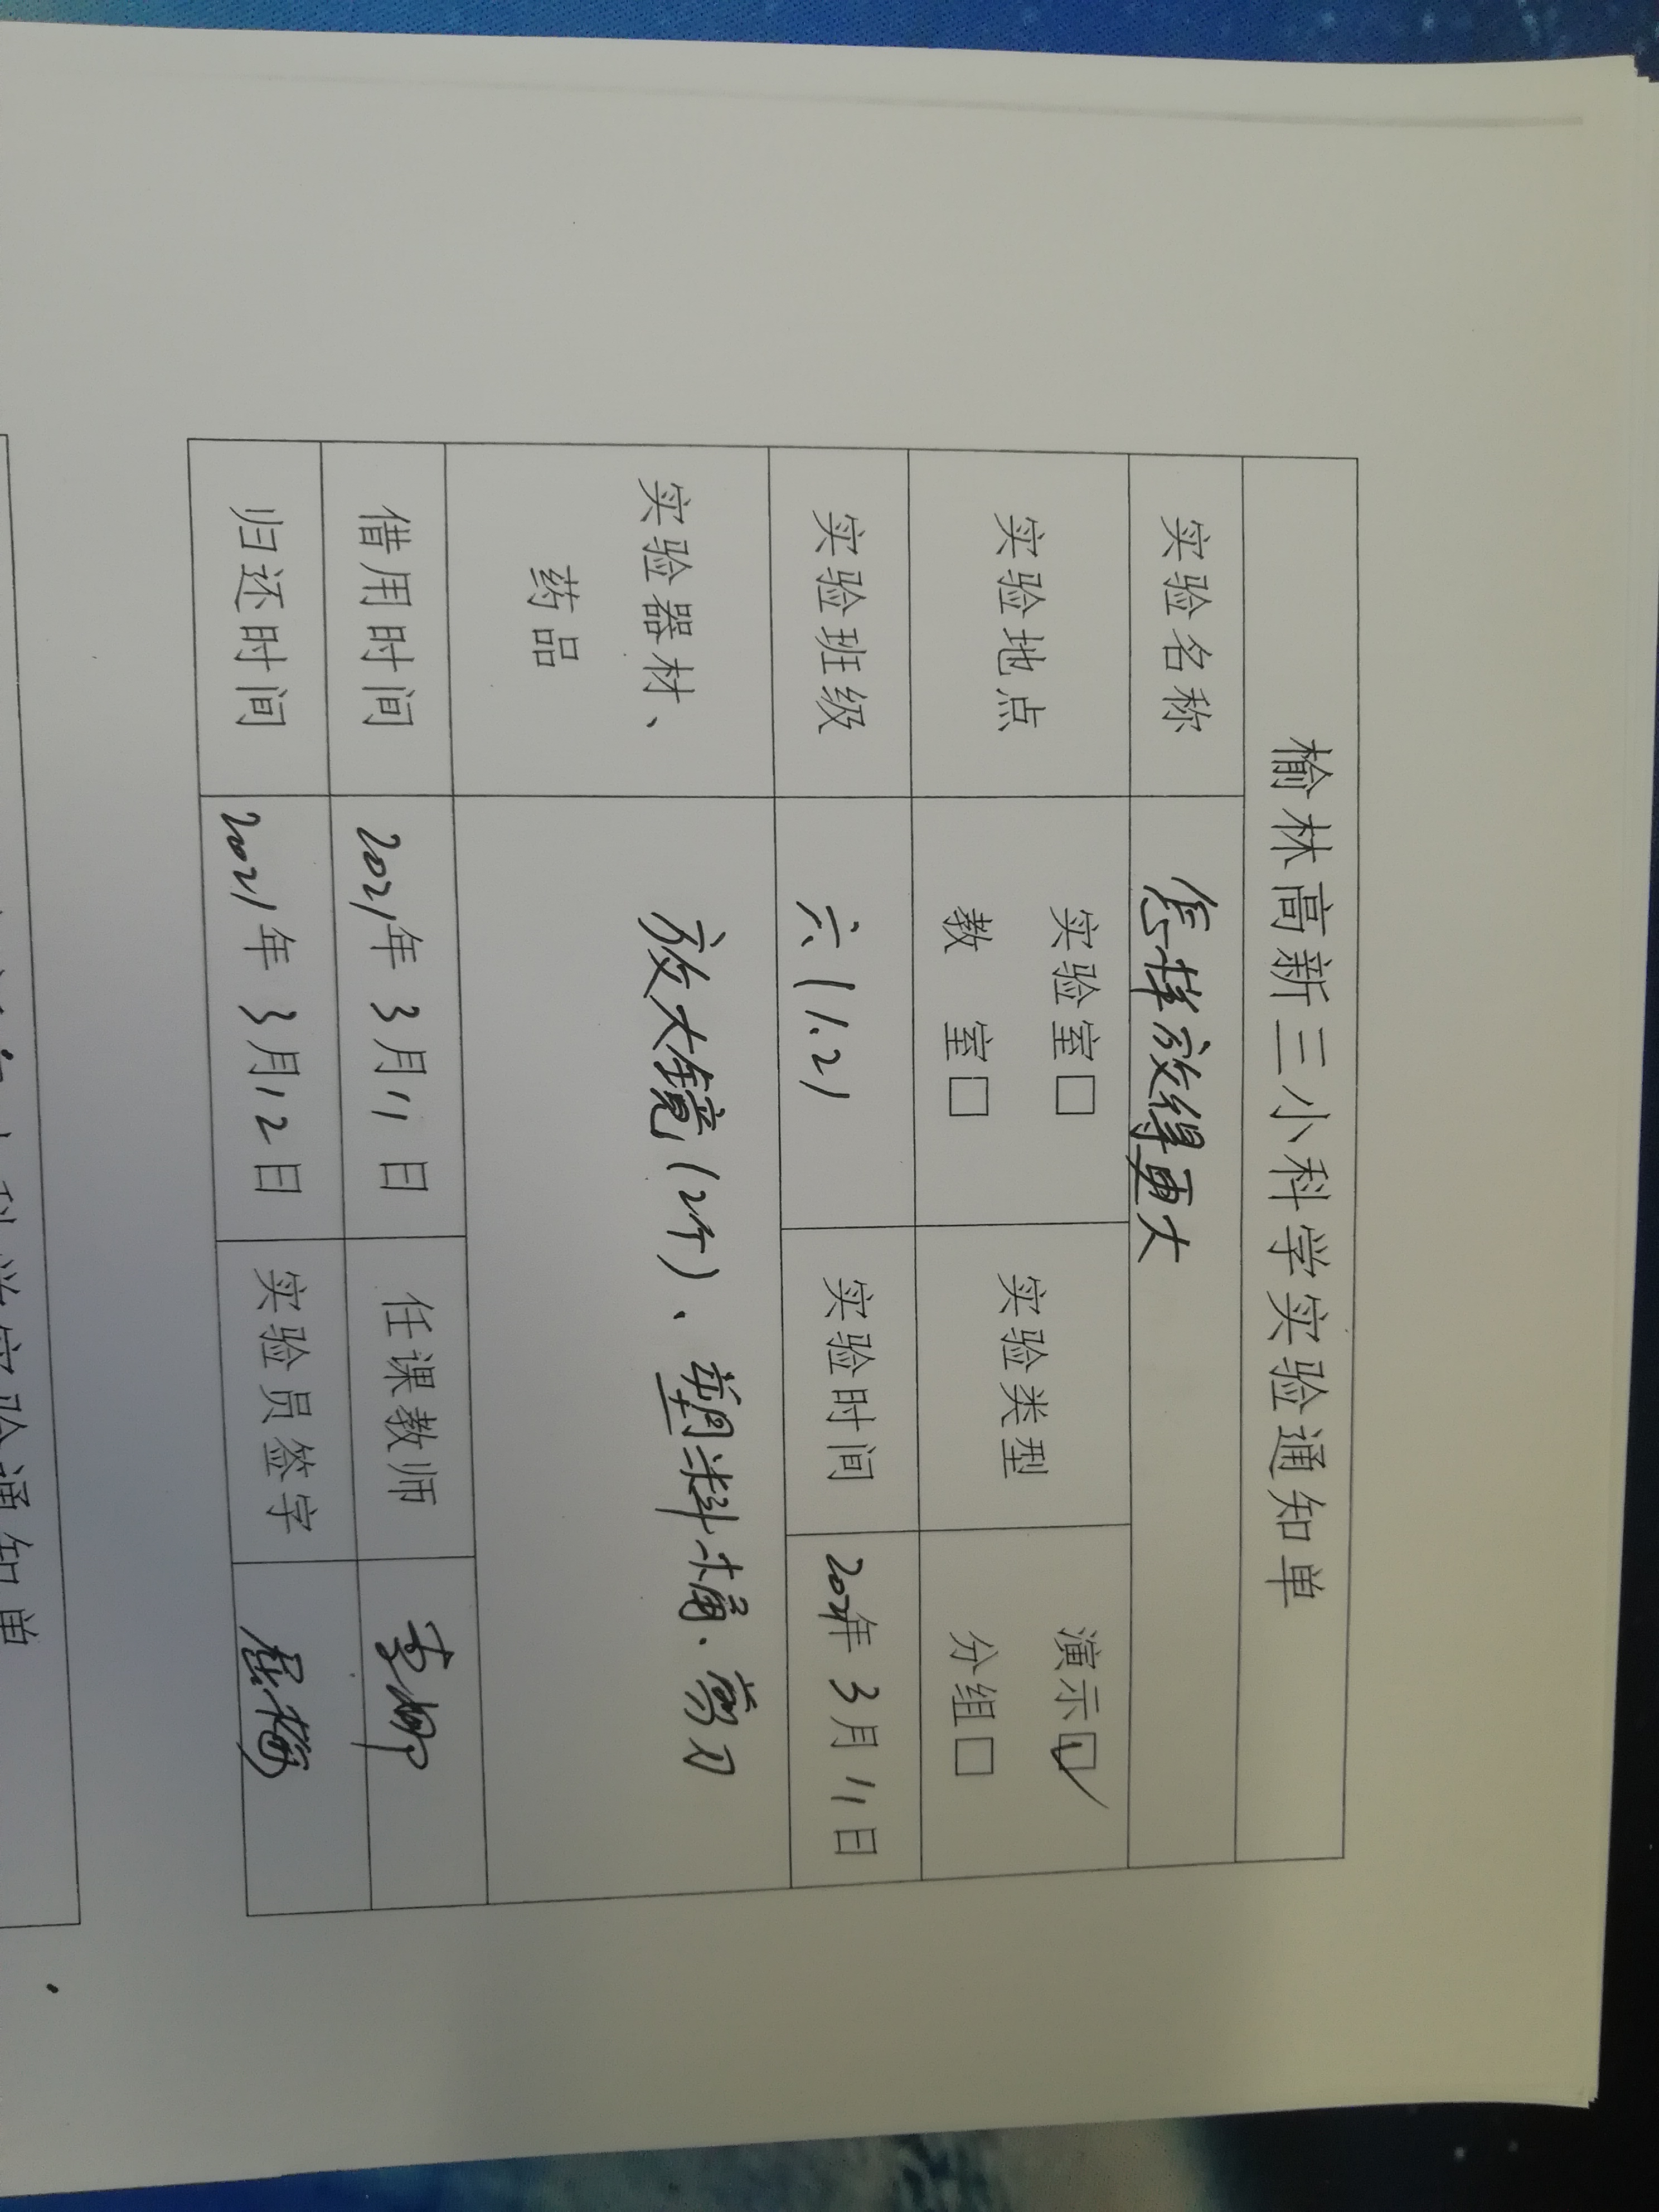 榆林高新三小科学实验通知单
实验名称 怎样放得更大
实验地点 实验室□ 教 室□ 实验类型 演示☑ 分组□
实验班级 六(1.2) 实验时间 2021年3月11日
实验器材、药品 放大镜(2个)、塑料桶、剪刀
借用时间 2021年3月11日 任课教师 李娜
归还时间 2021年3月12日 实验员签字
科学实验通知单